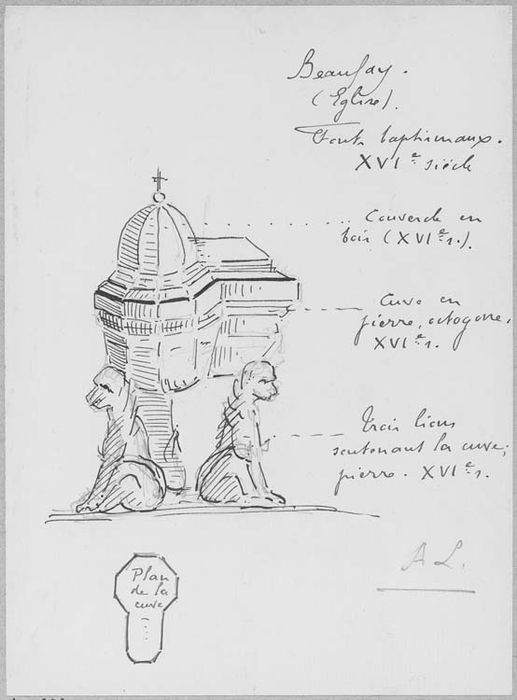 Beaufay.
(Eglise).
Fonts baptismaux.
XVIe siècle
Couvercle en
bois (XVIe s.).
Cuve en
pierre, octogone.
XVIe s.
Trois lions
soutenant la cuve;
pierre. XVIe s.
A L.
Plan
de la
cuve